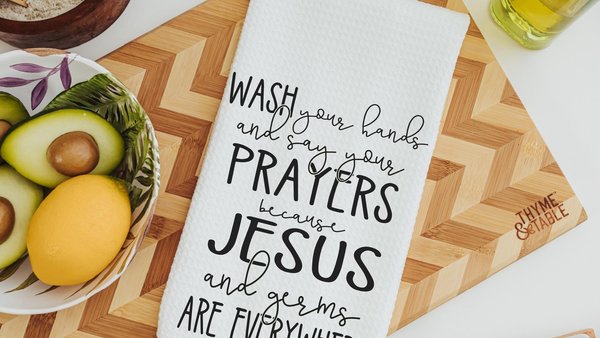 WASH your hands
and say your
PRAYERS
because
JESUS
and germs
ARE EVERYWHE
THYME
& TABLE